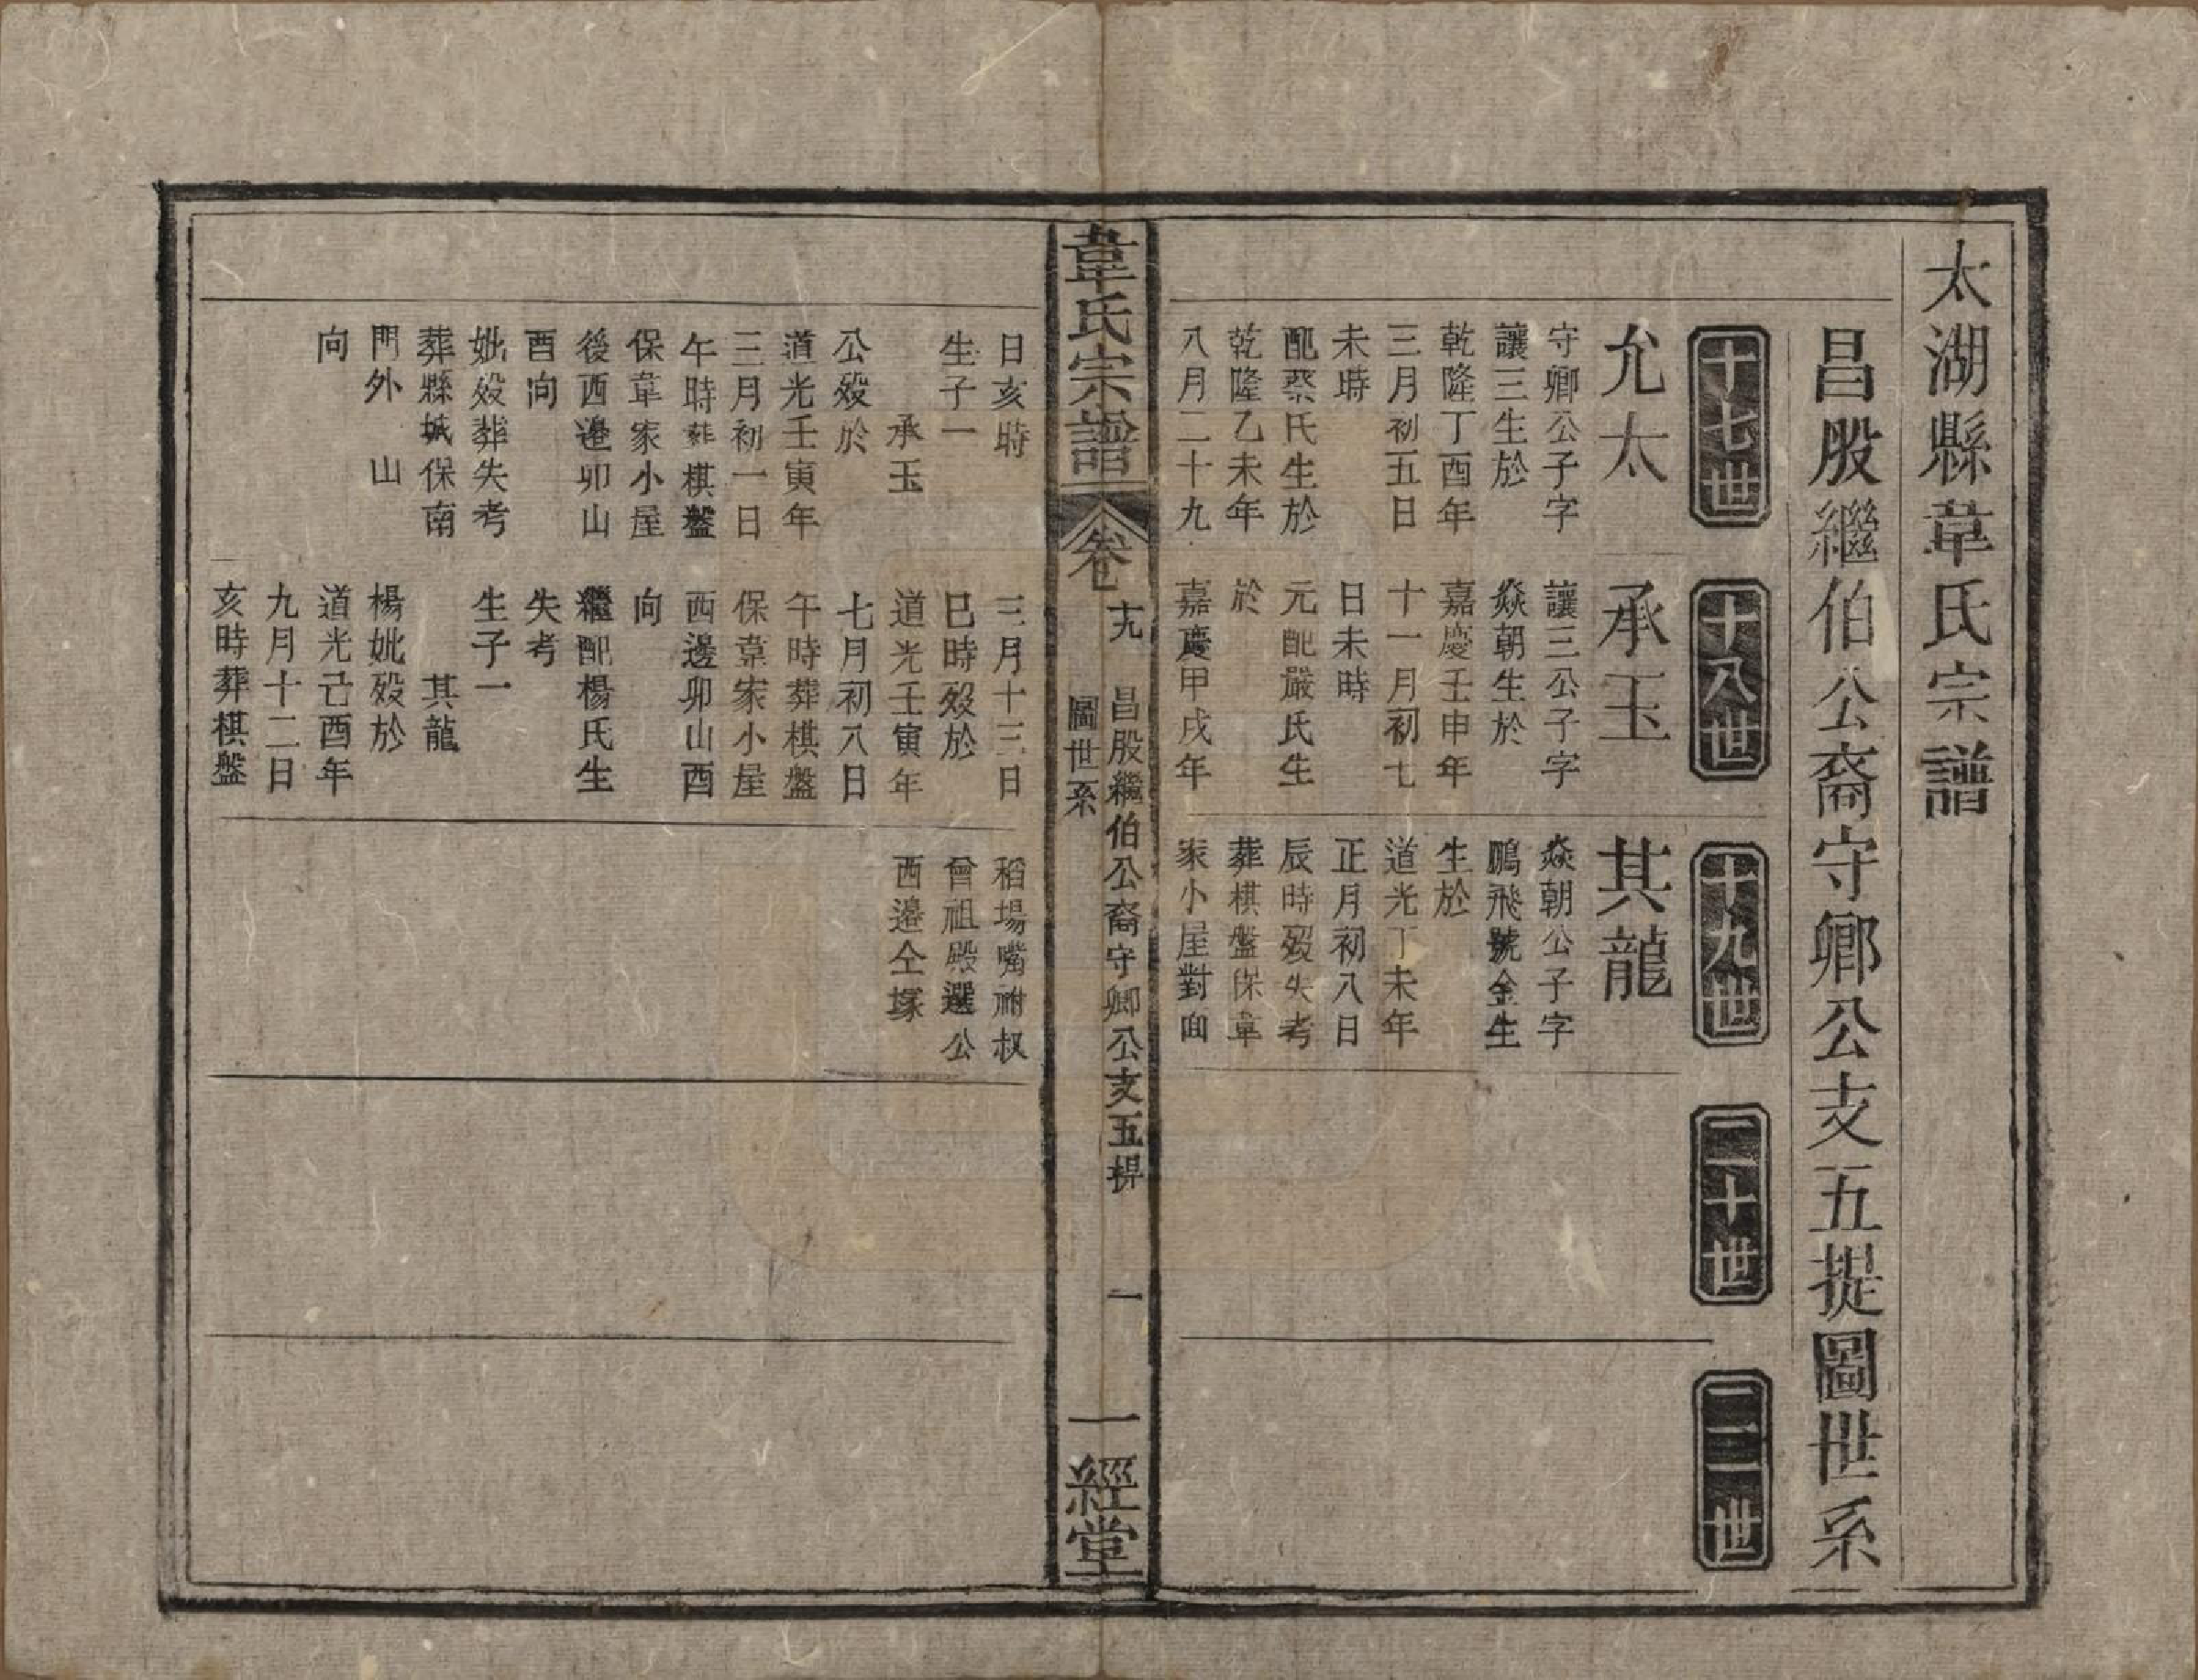 太湖縣韋氏宗譜
昌股繼伯公裔守卿公支五提圖世系
十七世
允太
守卿公子字
讓三生於
乾隆丁酉年
三月初五日
未時
配蔡氏生於
乾隆乙未年
八月二十九
十八世
承玉
讓三公子字
焱朝生於
嘉慶壬申年
十一月初七
日未時
元配嚴氏生
於
嘉慶甲戌年
十九世
其龍
焱朝公子字
鵬飛號金生
生於
道光丁未年
正月初八日
辰時歿失考
葬棋盤保韋
家小屋對面
二十世
二一世
韋氏宗譜
卷
十九
昌股繼伯公裔守卿公支五提
圖世系
一
一經堂
日亥時
生子一
承玉
公歿於
道光壬寅年
三月初一日
午時葬棋盤
保韋家小屋
後西邊卯山
酉向
妣歿葬失考
葬縣城保南
門外 山
向
三月十三日
巳時歿於
道光壬寅年
七月初八日
午時葬棋盤
保韋家小屋
西邊卯山酉
向
繼配楊氏生
失考
生子一
其龍
楊妣歿於
道光己酉年
九月十二日
亥時葬棋盤
稻場嘴祔叔
曾祖殿選公
西邊仝塚